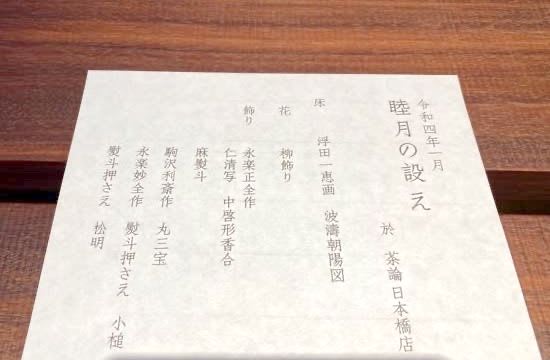 令和四年一月
睦月の設え
於 茶論 日本橋店
床 浮田一恵画 波濤朝陽図
花 柳飾り
飾り 永楽正全作
仁清写 中啓形香合
麻熨斗
駒沢利斎作 丸三宝
永楽妙全作 熨斗押さえ 小槌
熨斗押さえ 松明